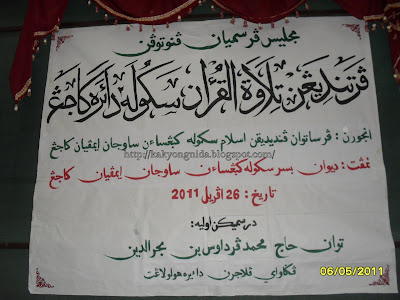 مجليس ڤرسميان ڤنوتوڤن
ڤرتنديڠن تلاوة القرءان سكوله دائره كاجڠ
انجورن : ڤرساتوان ڤنديديقن اسلام سكوله كبڠساءن ساوجان ايمڤيان كاجڠ
http://kakyongnida.blogspot.com/
تمڤت : ديوان بسر سكوله كبڠساءن ساوجان ايمڤيان كاجڠ
تاريخ : 26 اڤريل 2011
درسميكن اوليه:
توان حاج محمد ڤرداوس بن مجر الدين
ڤڬاواي ڤلاجرن دائيره هولو لاڠت
06/05/2011